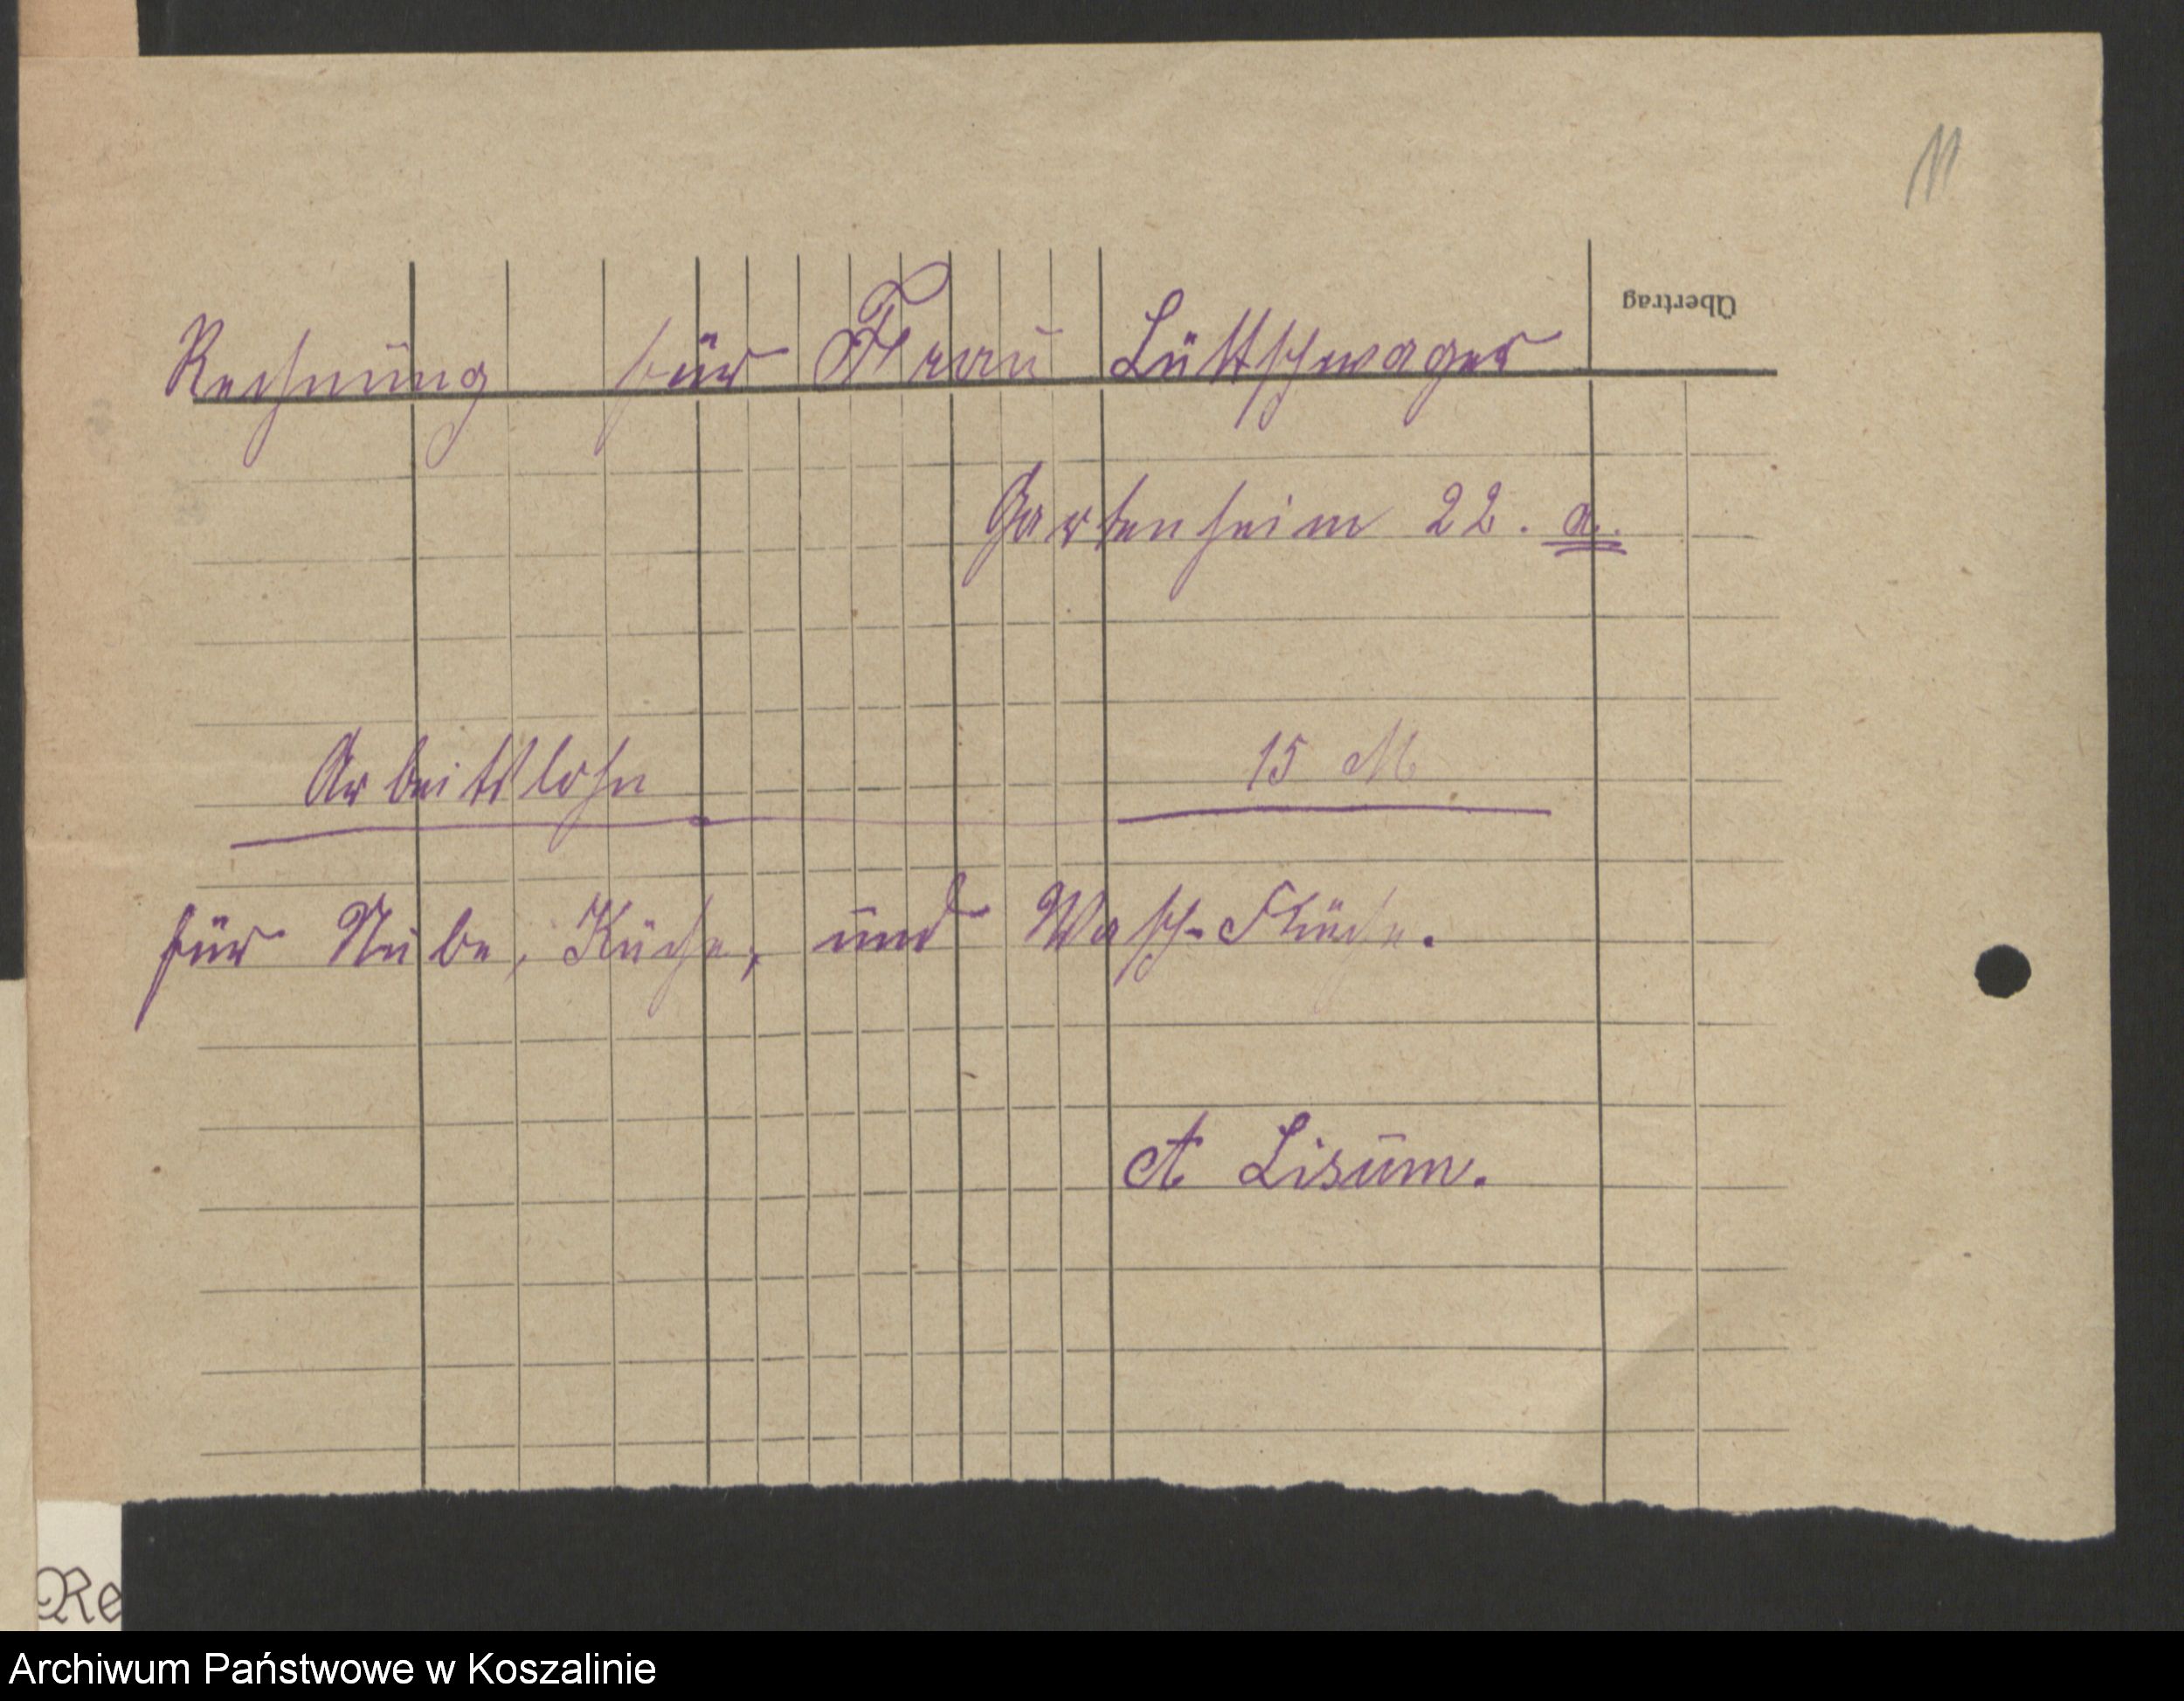 11
Übertrag
Rechnung für Frau Lüttschwager
Gartenheim 22. a.
Arbeitslohn 15 M
für Stube, Küche, und Wasch-Küche.
A Lisum.
Re
Archiwum Państwowe w Koszalinie